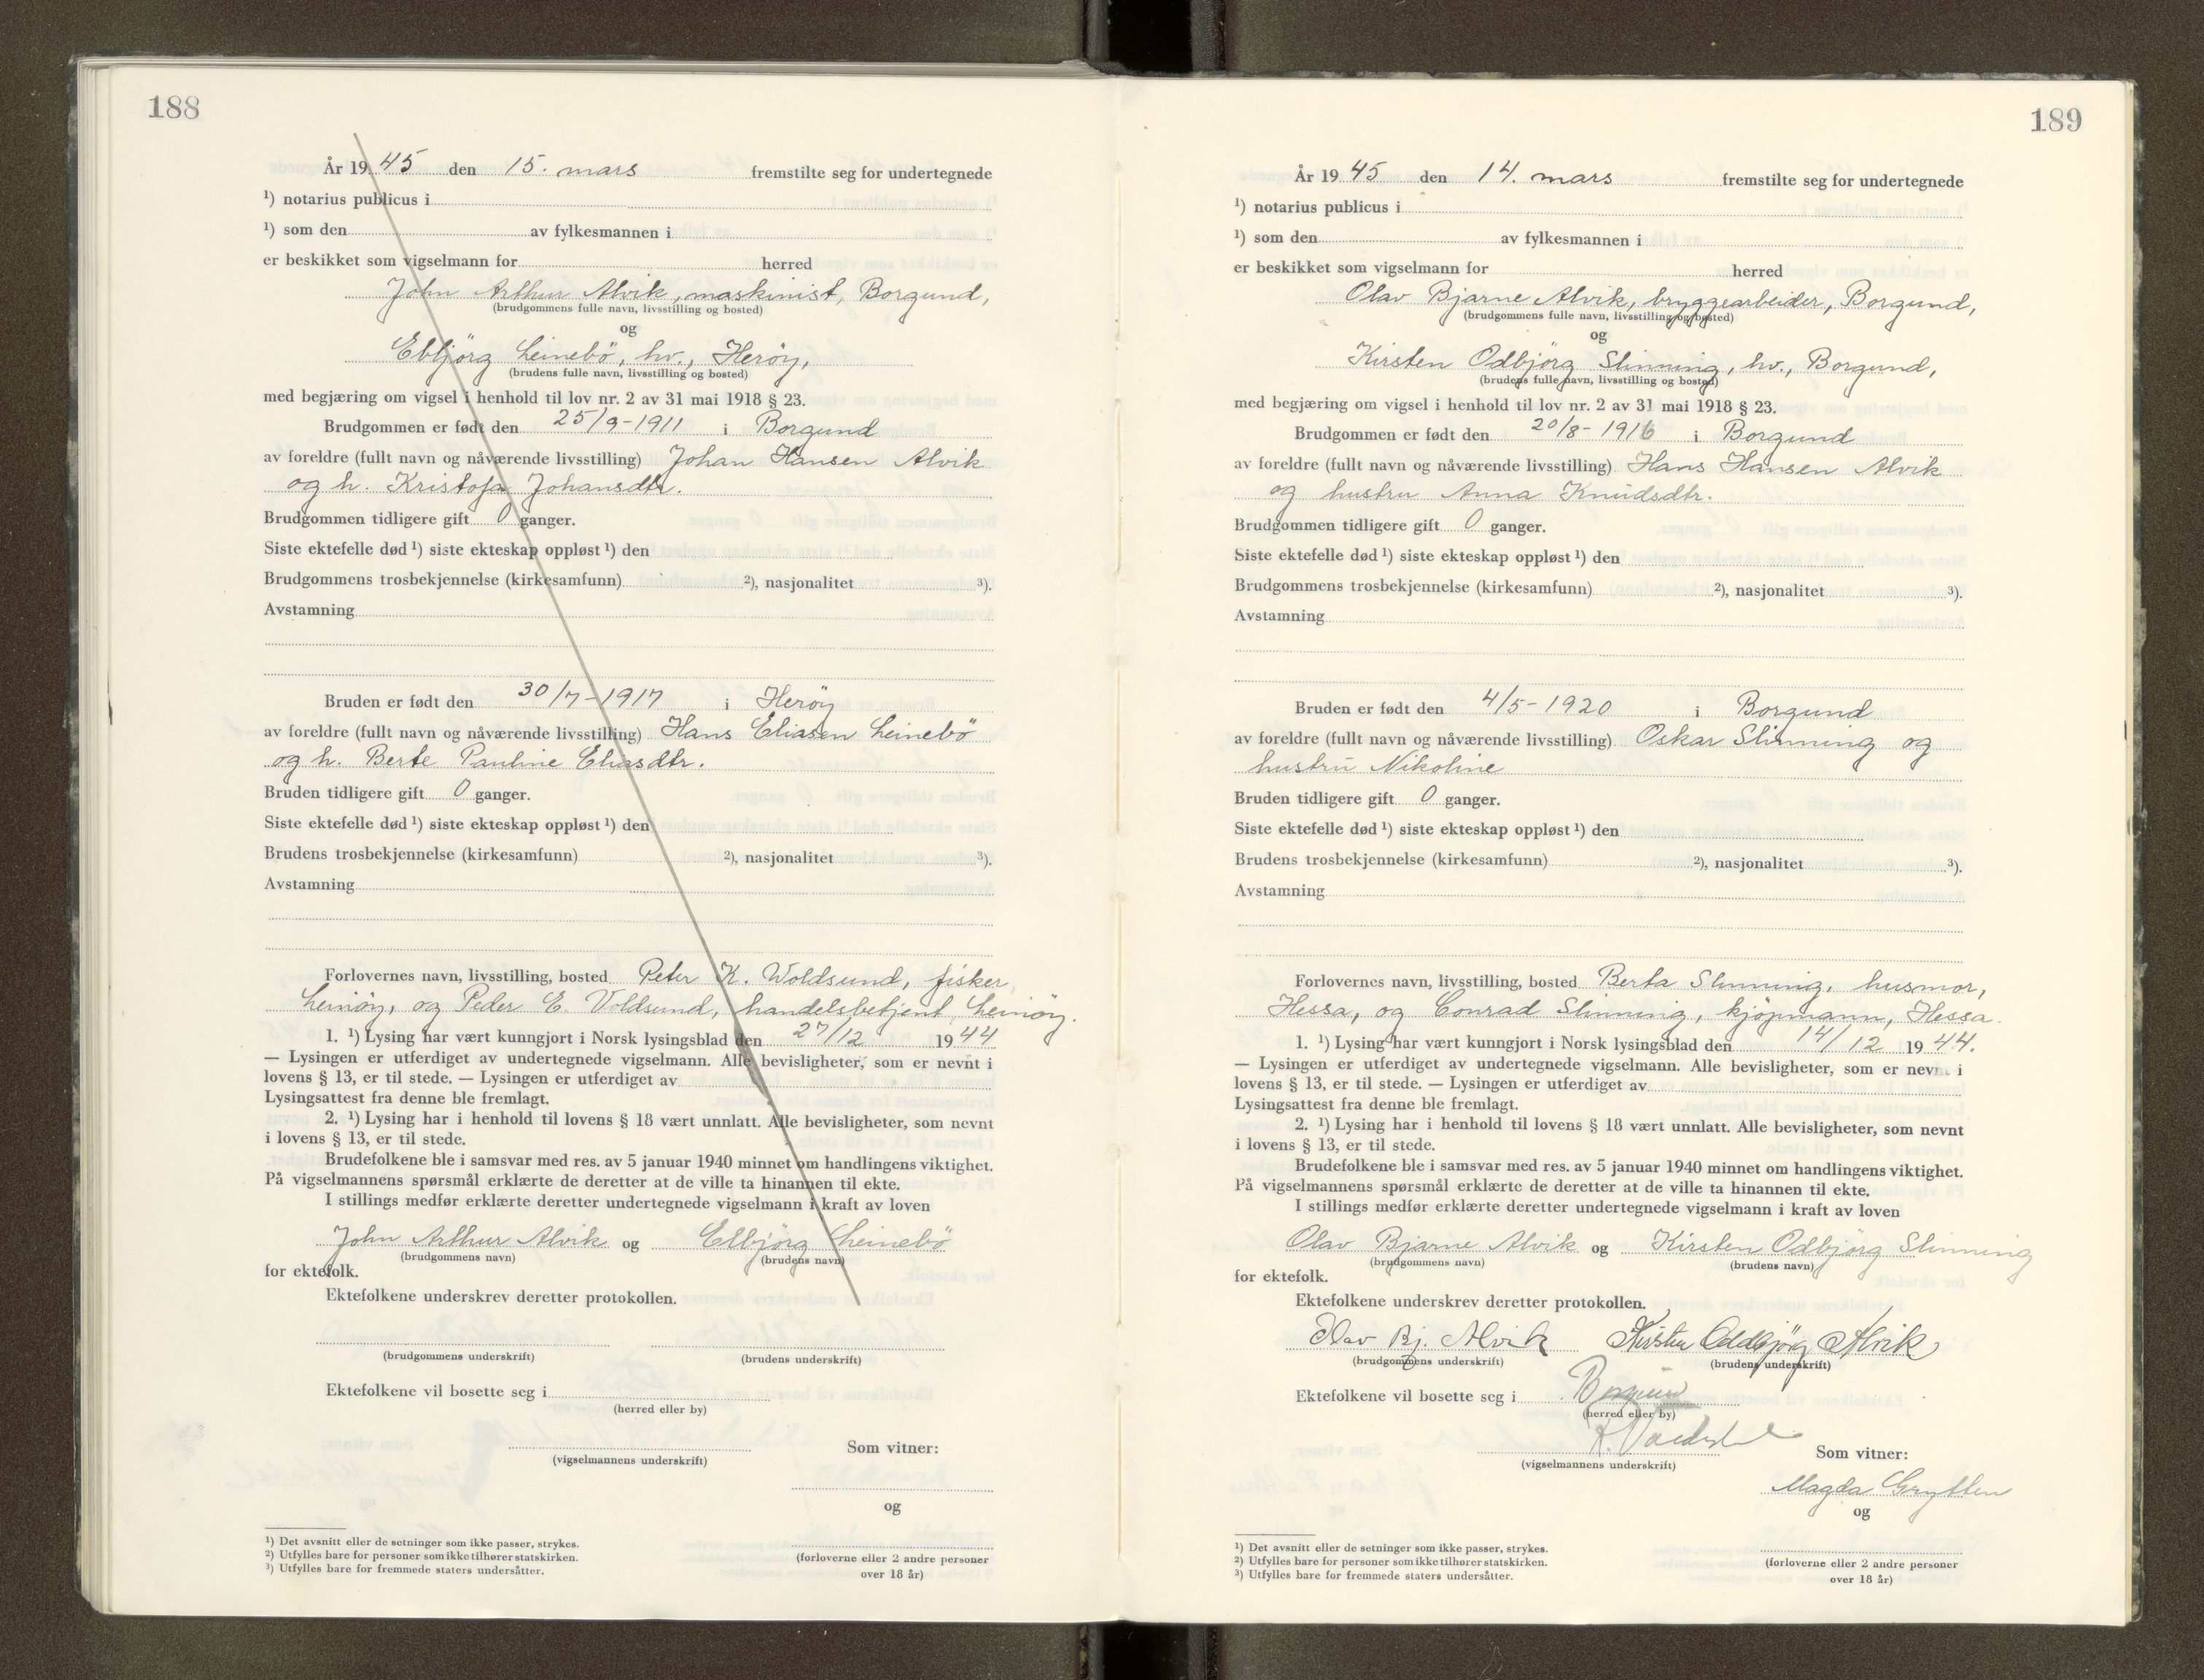 188
År 19 45 den 15. mars fremstilte seg for undertegnede
¹) notarius publicus i
¹) som den av fylkesmannen i
er beskikket som vigselmann for herred
John Arthur Alvik, maskinist, Borgund,
(brudgommens fulle navn, livsstilling og bosted)
og
Elbjörg Leinebö, hv., Heröy,
(brudens fulle navn, livsstilling og bosted)
med begjæring om vigsel i henhold til lov nr. 2 av 31 mai 1918 § 23.
Brudgommen er født den 25/9-1911 i Borgund
av foreldre (fullt navn og nåværende livsstilling) Johan Hansen Alvik
og h. Kristofa Johansdtr.
Brudgommen tidligere gift 0 ganger.
Siste ektefelle død ¹) siste ekteskap oppløst ¹) den
Brudgommens trosbekjennelse (kirkesamfunn) ²), nasjonalitet ³).
Avstamning
Bruden er født den 30/7-1917 i Heröy
av foreldre (fullt navn og nåværende livsstilling) Hans Eliasen Leinebö
og h. Berte Pauline Eliasdtr.
Bruden tidligere gift 0 ganger.
Siste ektefelle død ¹) siste ekteskap oppløst ¹) den
Brudens trosbekjennelse (kirkesamfunn) ²), nasjonalitet ³).
Avstamning
Forlovernes navn, livsstilling, bosted Peter K. Woldsund, fisker,
Leinöy, og Peder E. Voldsund, handelsbetjent, Leinöy.
1. ¹) Lysing har vært kunngjort i Norsk lysingsblad den 27/12 19 44
— Lysingen er utferdiget av undertegnede vigselmann. Alle bevisligheter, som er nevnt i
lovens § 13, er til stede. — Lysingen er utferdiget av
Lysingsattest fra denne ble fremlagt.
2. ¹) Lysing har i henhold til lovens § 18 vært unnlatt. Alle bevisligheter, som nevnt
i lovens § 13, er til stede.
Brudefolkene ble i samsvar med res. av 5 januar 1940 minnet om handlingens viktighet.
På vigselmannens spørsmål erklærte de deretter at de ville ta hinannen til ekte.
I stillings medfør erklærte deretter undertegnede vigselmann i kraft av loven
John Arthur Alvik og Elbjörg Leinebö
(brudgommens navn) (brudens navn)
for ektefolk.
Ektefolkene underskrev deretter protokollen.
(brudgommens underskrift) (brudens underskrift)
Ektefolkene vil bosette seg i
(herred eller by)
Som vitner:
(vigselmannens underskrift)
og
(forloverne eller 2 andre personer
over 18 år)
¹) Det avsnitt eller de setninger som ikke passer, strykes.
²) Utfylles bare for personer som ikke tilhører statskirken.
³) Utfylles bare for fremmede staters undersåtter.
189
År 19 45 den 14. mars fremstilte seg for undertegnede
¹) notarius publicus i
¹) som den av fylkesmannen i
er beskikket som vigselmann for herred
Olav Bjarne Alvik, bryggearbeider, Borgund,
(brudgommens fulle navn, livsstilling og bosted)
og
Kirsten Odbjörg Slinning, hv., Borgund,
(brudens fulle navn, livsstilling og bosted)
med begjæring om vigsel i henhold til lov nr. 2 av 31 mai 1918 § 23.
Brudgommen er født den 20/8-1916 i Borgund
av foreldre (fullt navn og nåværende livsstilling) Hans Hansen Alvik
og hustru Anna Knudsdtr.
Brudgommen tidligere gift 0 ganger.
Siste ektefelle død ¹) siste ekteskap oppløst ¹) den
Brudgommens trosbekjennelse (kirkesamfunn) ²), nasjonalitet ³).
Avstamning
Bruden er født den 4/5-1920 i Borgund
av foreldre (fullt navn og nåværende livsstilling) Oskar Slinning og
hustru Nikoline
Bruden tidligere gift 0 ganger.
Siste ektefelle død ¹) siste ekteskap oppløst ¹) den
Brudens trosbekjennelse (kirkesamfunn) ²), nasjonalitet ³).
Avstamning
Forlovernes navn, livsstilling, bosted Berta Slinning, husmor,
Hessa, og Conrad Slinning, kjöpmann, Hessa.
1. ¹) Lysing har vært kunngjort i Norsk lysingsblad den 14/12 19 44.
— Lysingen er utferdiget av undertegnede vigselmann. Alle bevisligheter, som er nevnt i
lovens § 13, er til stede. — Lysingen er utferdiget av
Lysingsattest fra denne ble fremlagt.
2. ¹) Lysing har i henhold til lovens § 18 vært unnlatt. Alle bevisligheter, som nevnt
i lovens § 13, er til stede.
Brudefolkene ble i samsvar med res. av 5 januar 1940 minnet om handlingens viktighet.
På vigselmannens spørsmål erklærte de deretter at de ville ta hinannen til ekte.
I stillings medfør erklærte deretter undertegnede vigselmann i kraft av loven
Olav Bjarne Alvik og Kirsten Odbjörg Slinning
(brudgommens navn) (brudens navn)
for ektefolk.
Ektefolkene underskrev deretter protokollen.
Olav Bj. Alvik Kirsten Oddbjörg Alvik
(brudgommens underskrift) (brudens underskrift)
Ektefolkene vil bosette seg i Borgund
(herred eller by)
Som vitner:
(vigselmannens underskrift)
Magda Grytten
og
(forloverne eller 2 andre personer
over 18 år)
¹) Det avsnitt eller de setninger som ikke passer, strykes.
²) Utfylles bare for personer som ikke tilhører statskirken.
³) Utfylles bare for fremmede staters undersåtter.